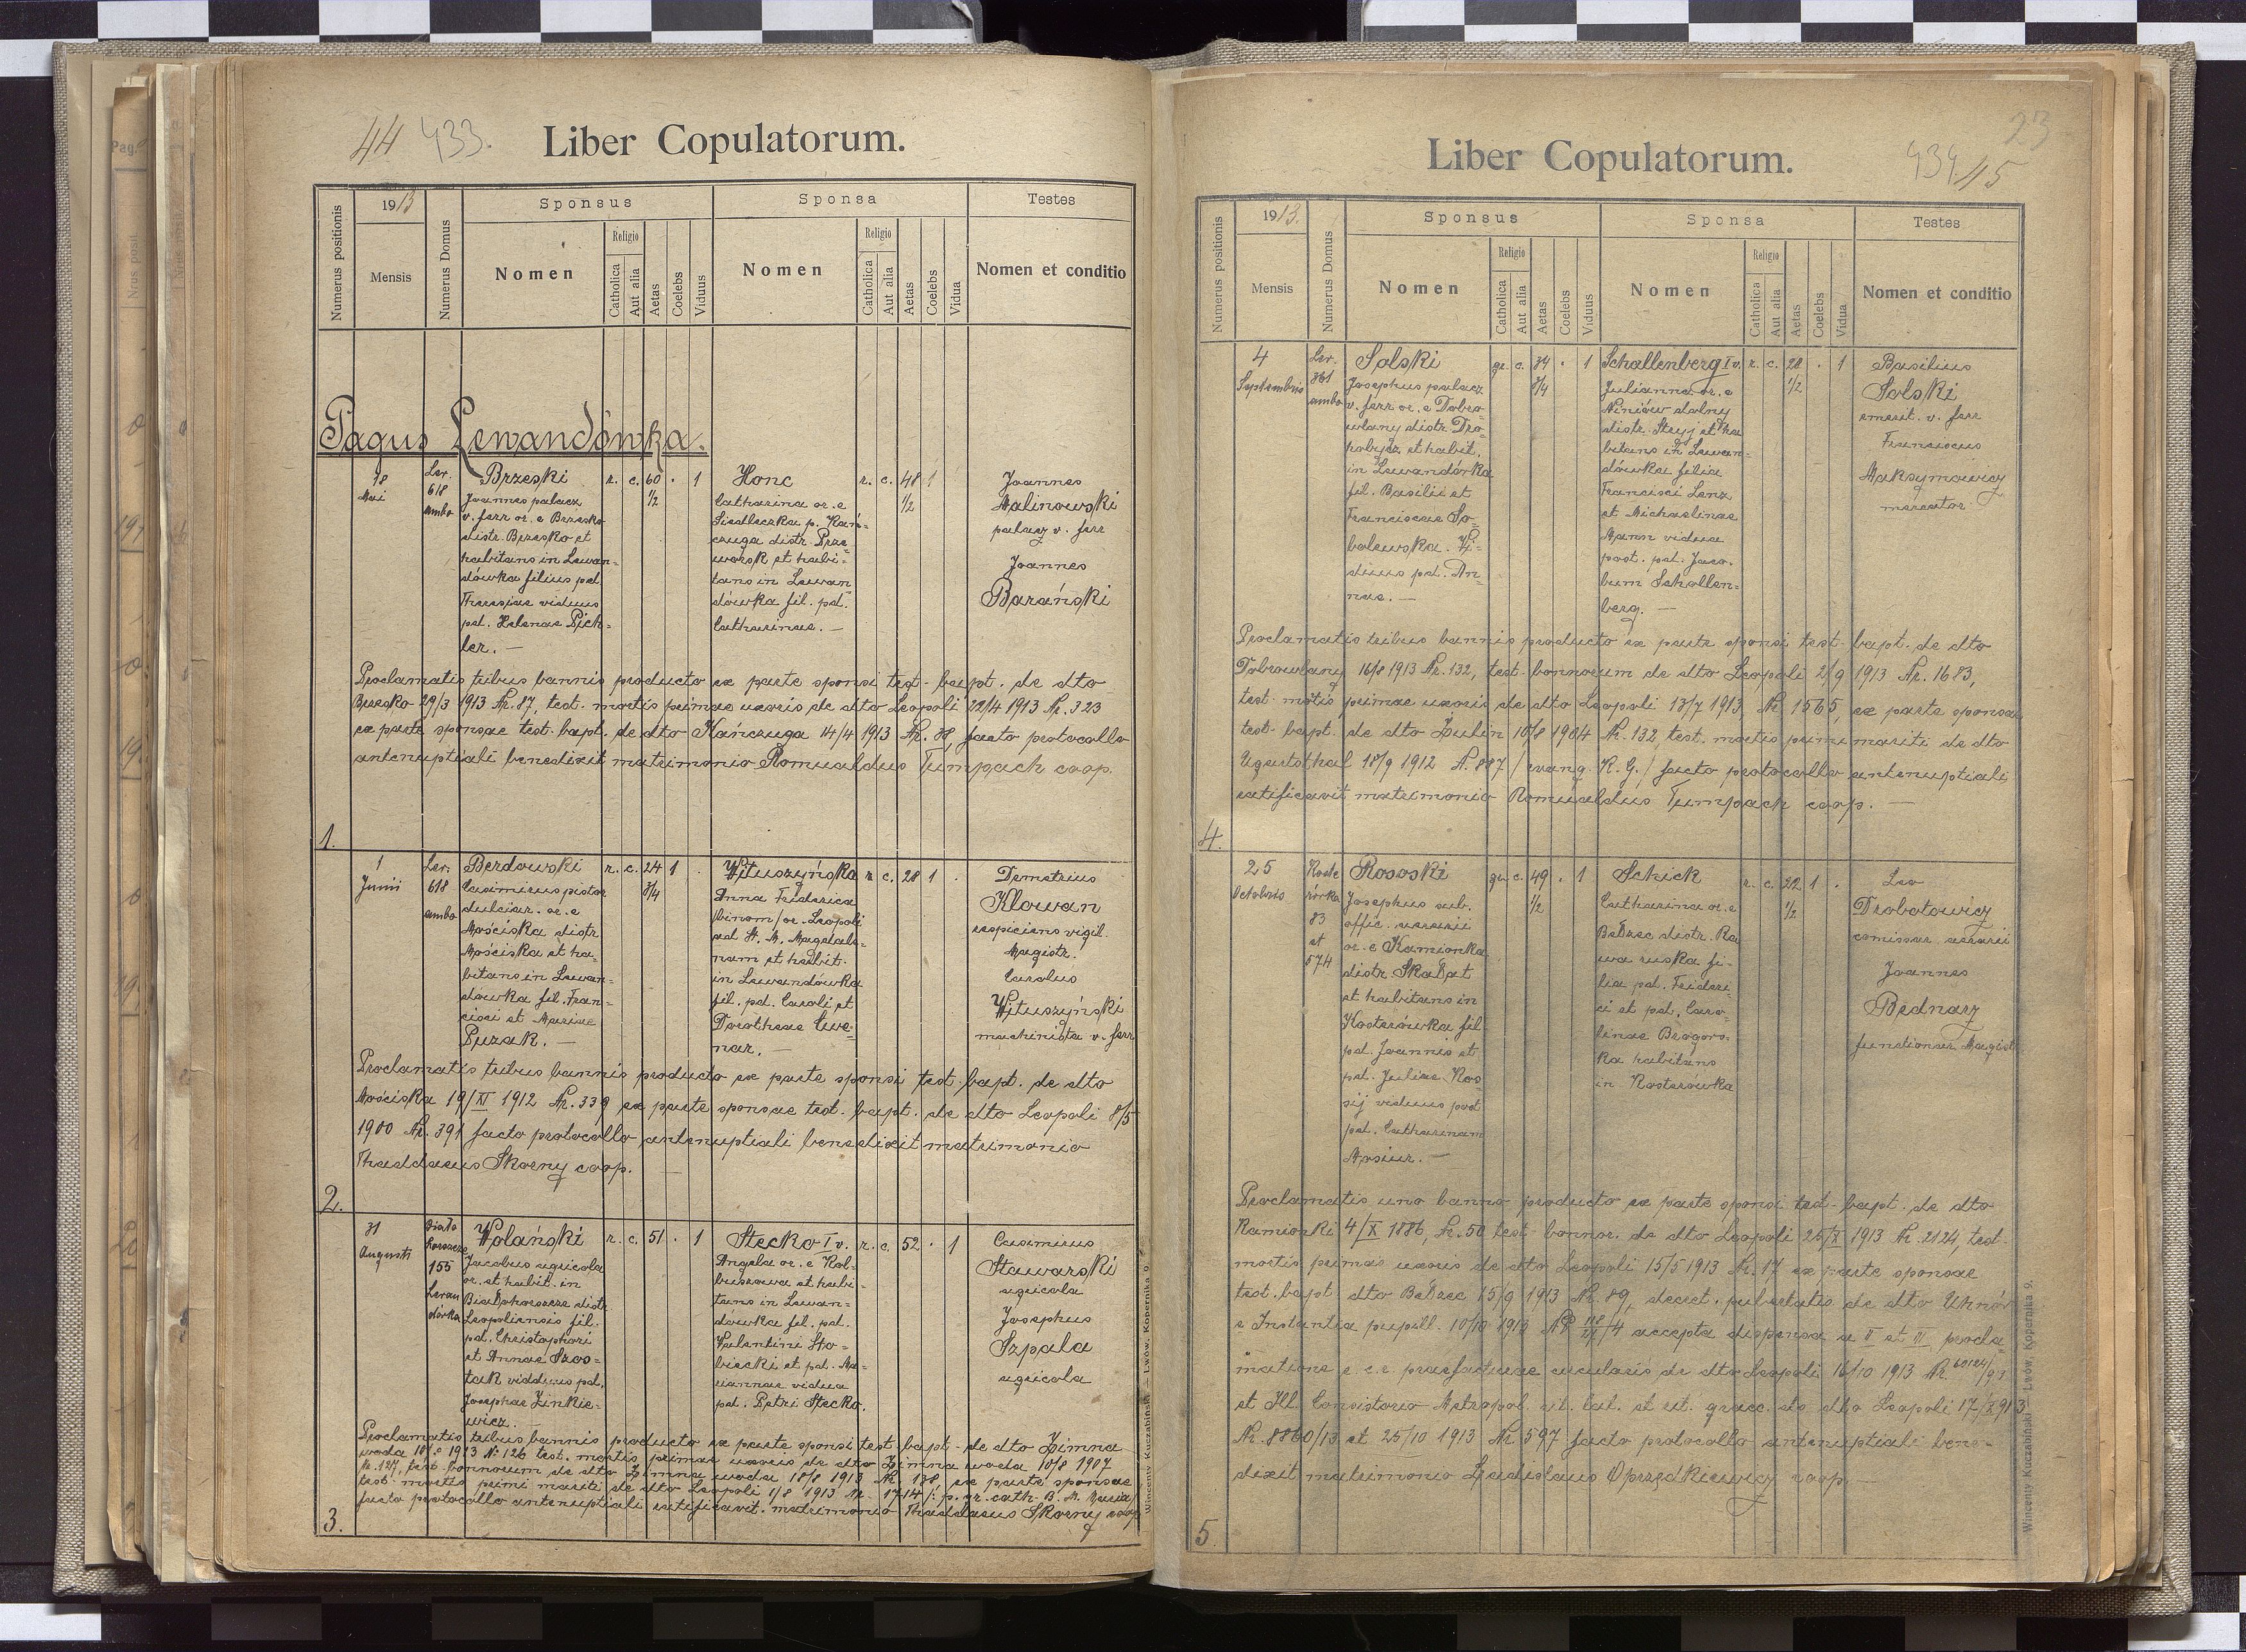 44 433.
Liber Copulatorum.
Numerus positionis
1913
Mensis
Numerus Domus
Sponsus
Nomen
Religio
Catholica
Aut alia
Aetas
Coelebs
Viduus
Sponsa
Nomen
Religio
Catholica
Aut alia
Aetas
Coelebs
Vidua
Testes
Nomen et conditio
Pagus Lewandówka.
18
Mai
Lew.
618
ambo
Brzeski
Joannes palacz
v. ferr or. e Brzesko
distr. Brzesko et
habitans in Lewan=
dówka filius pd
Theresiae viduus
pd. Helenae Pich=
ler. —
r. c. 60 1/2 . 1
Honc
Catharina or. e
Siedleczka p. Kań=
czuga distr. Prze=
worsk et habi=
tans in Lewan
dówka fil. pd.
Catharinae. —
r. c. 48 1/2 1
Joannes
Malinowski
palacz v. ferr
Joannes
Barański
Proclamatis tribus bannis producto ex parte sponsi test. bapt. de dto
Brzesko 29/3 1913 Nr. 87, test. mortis primae uxoris de dto Leopoli 22/4 1913 Nr. 323
ex parte sponsae test. bapt. de dto Kańczuga 14/4 1913 Nr. 38, facto protocollo
antenuptiali benedixit matrimonio Romualdus Tumpach coop.
1.
1
Junii
Lew.
618
ambo
Berdowski
Casimirus pistor
dulciar. or. e
Mościska distr
Mościska et ha=
bitans in Lewan=
dówka fil. Fran=
cisci et Mariae
Puzak. —
r. c. 24 3/4 1 .
Wituszyńska
Anna Friderica
/binom/ or. Leopoli
ad St. M. Magdale=
nam et habit.
in Lewandówka
fil. pd. Caroli et
Dorotheae Cwe=
nar. —
r. c. 28 1 .
Demetrius
Klowan
inspiciens vigil.
Magistr.
Carolus
Wituszyński
machinista v. ferr
Proclamatis tribus bannis producto ex parte sponsi test. bapt. de dto
Mościska 19/XI 1912 Nr. 339 ex parte sponsae test. bapt. de dto Leopoli 8/5
1900 Nr. 391 facto protocollo antenuptiali benedixit matrimonio
Thaddaeus Skorny coop. —
2.
31
Augusti
Biało
horszcze
155
Lewan
dówka
Wolański
Jacobus agricola
or. et habit. in
Białohorszcze distr
Leopoliensis fil.
pd. Christophori
et Annae Szos=
tak vidduus pd.
Josephae Zinkie=
wicz. —
r. c. 51 . 1
Stecko I v.
Angela or. e Kol=
buszowa et habi=
tans in Lewan=
dówka fil. pd.
Valentini Sto=
biecki et pd. Ma=
riannae vidua
pd. Petri Stecko.
r. c. 52 . 1
Casimirus
Stawarski
agricola
Josephus
Szpala
agricola
Proclamatis tribus bannis producto ex parte sponsi test bapt. de dto Zimna
woda 10/8 1913 Nr 126 test. mortis primae uxoris de dto Zimna woda 10/8 1907
Nr. 127, test. bonnorum de dto Zimna woda 18/8 1913 Nr. 138, ex parte sponsae
test. mortis primi mariti de dto Leopoli 1/8 1913 Nr. 1714 /: p. gr. cath. B. M.
facto protocollo antenuptiali ratificavit. matrimonio Thaddaeus Skorny coop
3.
Wincenty Kuczabiński — Lwów, Kopernika 9.
23
434 45
Liber Copulatorum.
Numerus positionis
1913.
Mensis
Numerus Domus
Sponsus
Nomen
Religio
Catholica
Aut alia
Aetas
Coelebs
Viduus
Sponsa
Nomen
Religio
Catholica
Aut alia
Aetas
Coelebs
Vidua
Testes
Nomen et conditio
4
Septembris
Lew.
361
ambo
Solski
Josephus palacz
v. ferr or. e Dobro
wlany distr. Dro=
hobycz et habit.
in Lewandówka
fil. Basilii et
Franciscae So=
bolewska. Vi=
duus pd. An=
nae. —
gr. c. 34 3/4 . 1
Schallenberg I v.
Julianna or. e
Niniów dolny
distr. Stryj et ha
bitans in Lewan=
dówka filia
Francisci Lenz
et Michaelinae
Mann vidua
post. pd. Jaco=
bum Schallen=
berg. —
r. c. 28 1/2 . 1
Basilius
Solski
emerit. v. ferr
Franciscus
Maksymowicz
mercator
Proclamatis tribus bannis producto ex parte sponsi test. bapt. de dto
Dobrowlany 16/8 1913 Nr. 132, test. bonnorum de dto Leopoli 2/9 1913 Nr. 1683,
test. motis primae uxoris de dto Leopoli 13/7 1913, Nr. 1565, ex parte sponsae
test. bapt. de dto Lulin 10/8 1904 Nr. 132, test. mortis primi mariti de dto
Ugartsthal 18/9 1912 N. 887 /evang. K. G./ facto protocollo antenuptiali
ratificavit matrimonio Romualdus Tumpach coop. —
4.
25
Octobris
Koste
rówka
83
et
574
Rososki
Josephus sub.
offic. aerarii
or. e Kamionka
distr. Skałat
et habitans in
Kosterówka fil
pd. Joannis et
pd. Juliae Kos=
sij viduus post
pd. Catharinam
Mosiur. —
gr. c. 49 1/2 . 1
Schick
Catharina or. e
Bełzec distr. Ra
wa ruska fi=
lia pd. Frideri=
ci et pd. Caro=
linae Brogors=
ka habitans
in Kosterówka
r. c. 22 1/2 1 .
Leo
Drobotowicz
comissar aerarii
Joannes
Bednarz
functionar. Magist.
Proclamatis uno banno producto ex parte sponsi test. bapt. de dto
Kamionki 4/X 1886, Nr. 50 test bonnor. de dto Leopoli 25/X 1913 Nr. 2124, test.
mortis primae uxoris de dto Leopoli 15/5 1913 Nr. 17 ex parte sponsae
test. bapt dto Bełzec 15/9 1913 Nr. 89, decret. pubertatis de dto Uhnów
e Instantia pupill. 10/10 1913 accepta dispensa a II et III procla=
matione e c. r. praefecturae circularis de dto Leopoli 16/10 1913 Nr. 60124/93
et Ill. Consistorio Metropol. rit. lat. et rit. graec. de dto Leopoli 17/X 913
Nr. 8860/13 et 25/10 1913 Nr 597 facto protocollo antenuptiali bene=
dixit matrimonio Ladislaus Oprzędkiewicz coop. —
5
Wincenty Kuczabiński — Lwów, Kopernika 9.